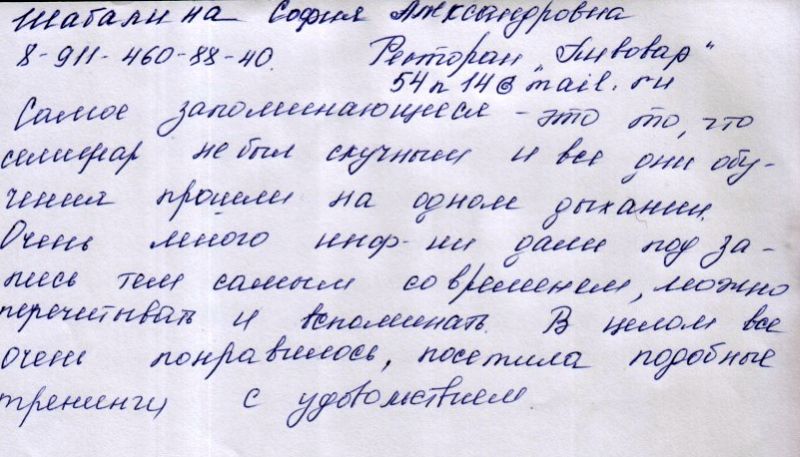 Шабалина София Александровна
8-911-460-88-40. Ресторан „Пивовар"
54п14@mail.ru
Самое запоминающееся - это то, что
семинар не был скучным и все дни обу-
чения прошли на одном дыхании.
Очень много инф-ии дали под за-
пись тем самым со временем, можно
перечитывать и вспоминать. В целом все
очень понравилось, посетила подобные
тренинги с удовольствием.